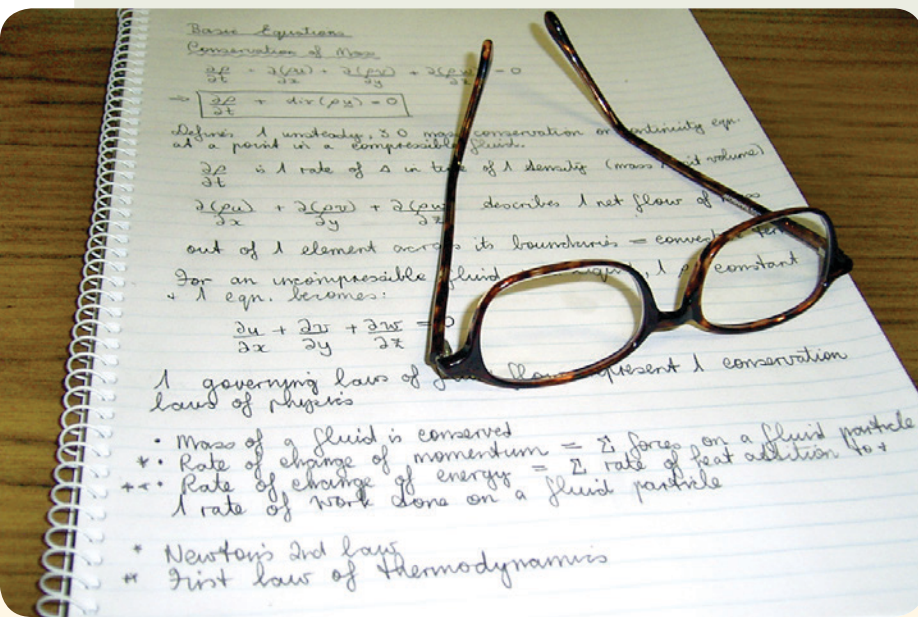 Basic Equations
Conservation of Mass
∂ρ/∂t + ∂(ρu)/∂x + ∂(ρv)/∂y + ∂(ρw)/∂z = 0
⇒ ∂ρ/∂t + div(ρu) = 0
Defines 1 unsteady, 3D mass conservation or continuity eqn.
at a point in a compressible fluid.
∂ρ/∂t is 1 rate of Δ in time of 1 density (mass unit volume)
∂(ρu)/∂x + ∂(ρv)/∂y + ∂(ρw)/∂z describes 1 net flow of mass
out of 1 element across its boundaries =
For an incompressible fluid 1 ρ constant
+ 1 eqn. becomes:
∂u/∂x + ∂v/∂y + ∂w/∂z = 0
1 governing laws of flow 1 conservation
laws of physics
• Mass of a fluid is conserved
* • Rate of change of momentum = Σ forces on a fluid particle
** • Rate of change of energy = Σ rate of heat addition to +
1 rate of work done on a fluid particle
* Newton's 2nd law
** First law of thermodynamics